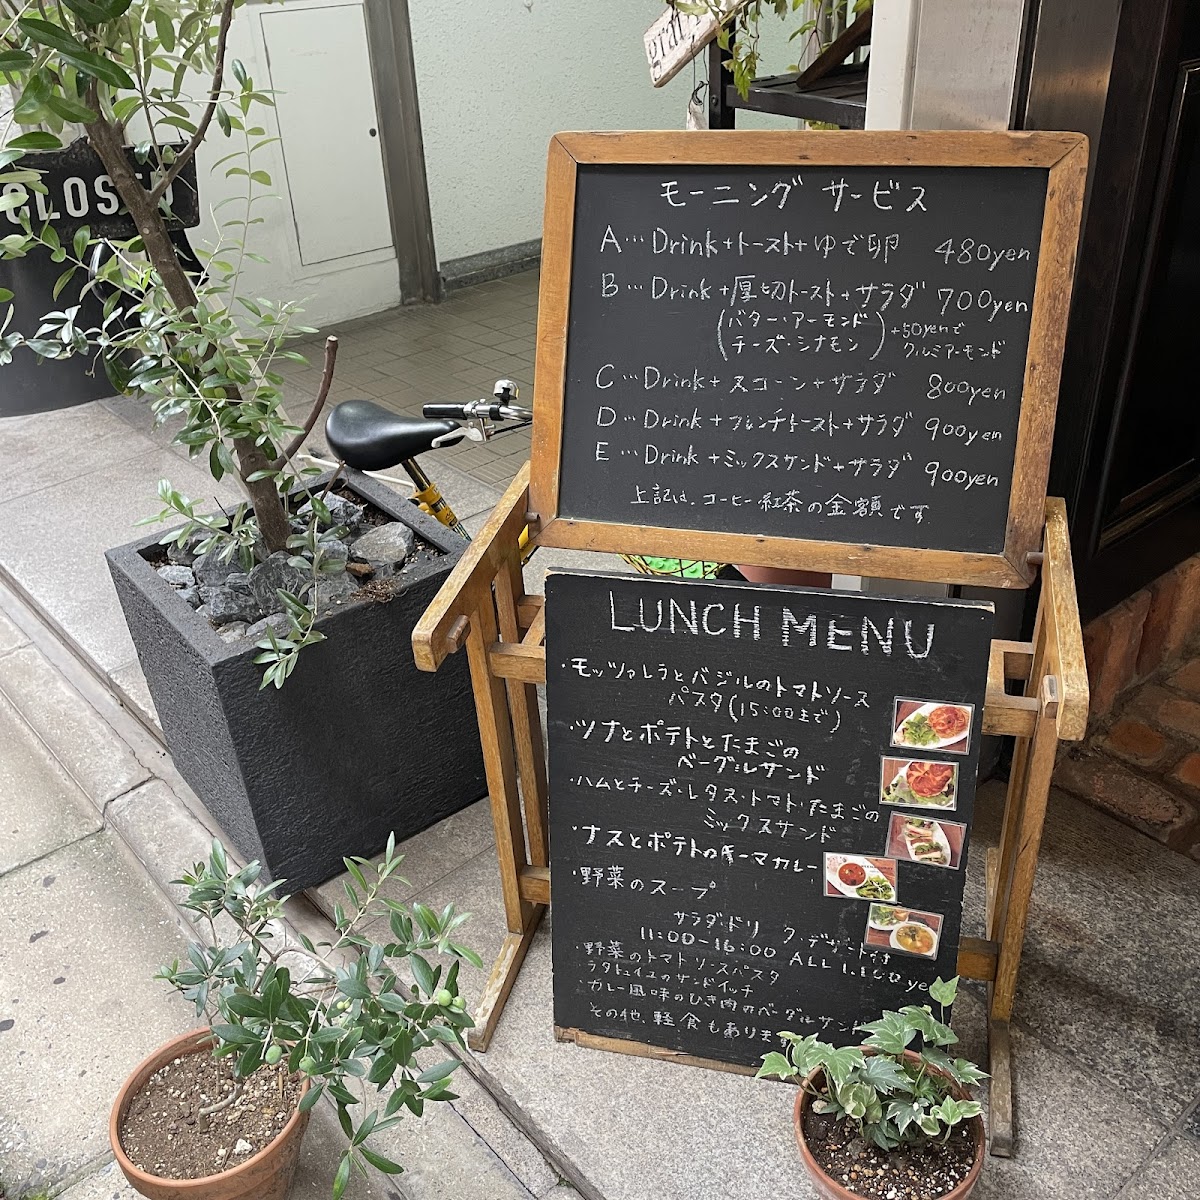 CLOSED
モーニング サービス
A…Drink+トースト+ゆで卵 480yen
B…Drink+厚切トースト+サラダ 700yen
(バター・アーモンド
チーズ・シナモン)
+50yenで
クルミアーモンド
C…Drink+スコーン+サラダ 800yen
D…Drink+フレンチトースト+サラダ 900yen
E…Drink+ミックスサンド+サラダ 900yen
上記は、コーヒー紅茶の金額です
LUNCH MENU
・モッツァレラとバジルのトマトソース
パスタ(15:00まで)
・ツナとポテトとたまごの
ベーグルサンド
・ハムとチーズ・レタス・トマト・たまごの
ミックスサンド
・ナスとポテトのキーマカレー
・野菜のスープ
サラダ・ドリ ク・デザート付
11:00-16:00 ALL
・野菜のトマトソースパスタ
・ラタトゥイユのサンドイッチ
・カレー風味のひき肉のベーグルサン
その他、軽食もあります